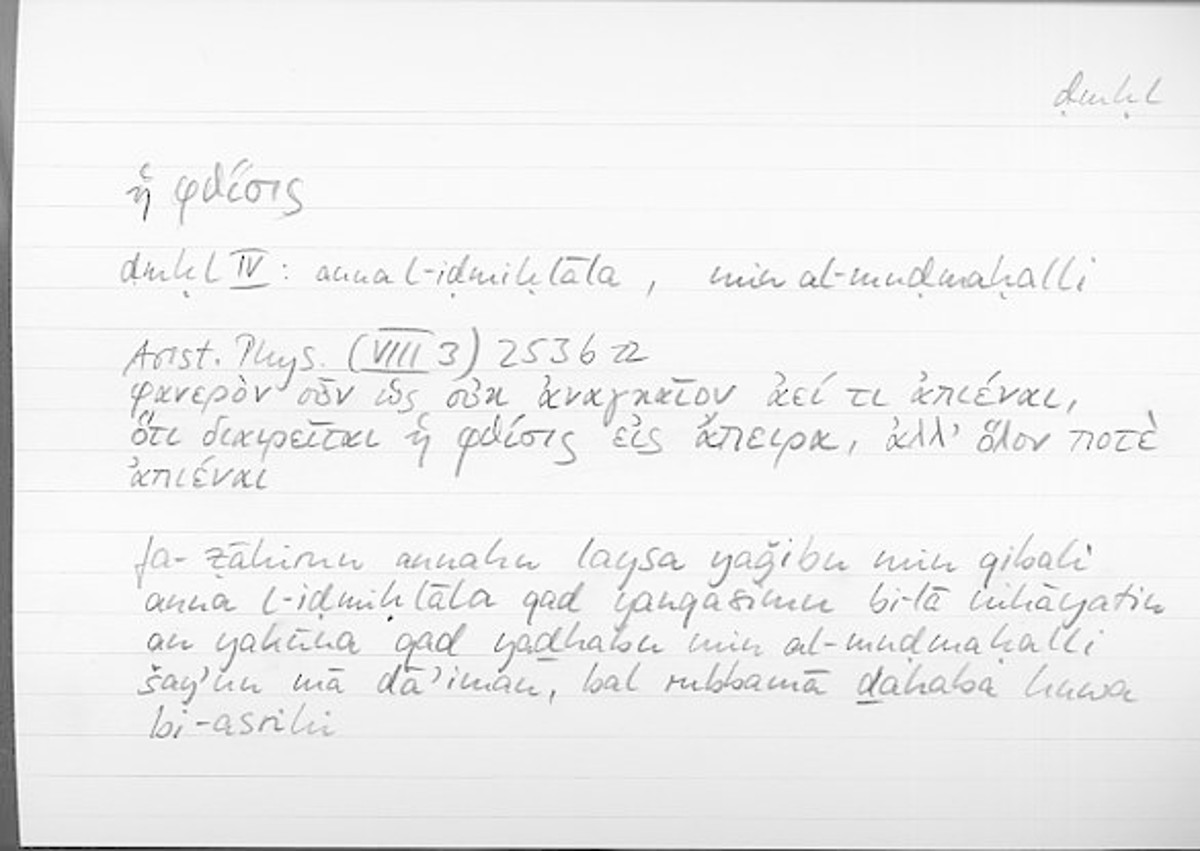 ḍmḥl
ἡ φθίσις
ḍmḥl IV : anna l-iḍmiḥlāla , min al-muḍmaḥalli
Arist. Phys. (VIII 3) 253b22
φανερὸν οὖν ὡς οὐκ ἀναγκαῖον ἀεί τι ἀπιέναι,
ὅτι διαιρεῖται ἡ φθίσις εἰς ἄπειρα, ἀλλ' ὅλον ποτὲ
ἀπιέναι
fa-ẓāhirun annahu laysa yaǧibu min qibali
anna l-iḍmiḥlāla qad yanqasimu bi-lā nihāyatin
an yakūna qad yaḏhabu min al-muḍmaḥalli
šay'un mā dā'iman, bal rubbamā ḏahaba huwa
bi-asrihi